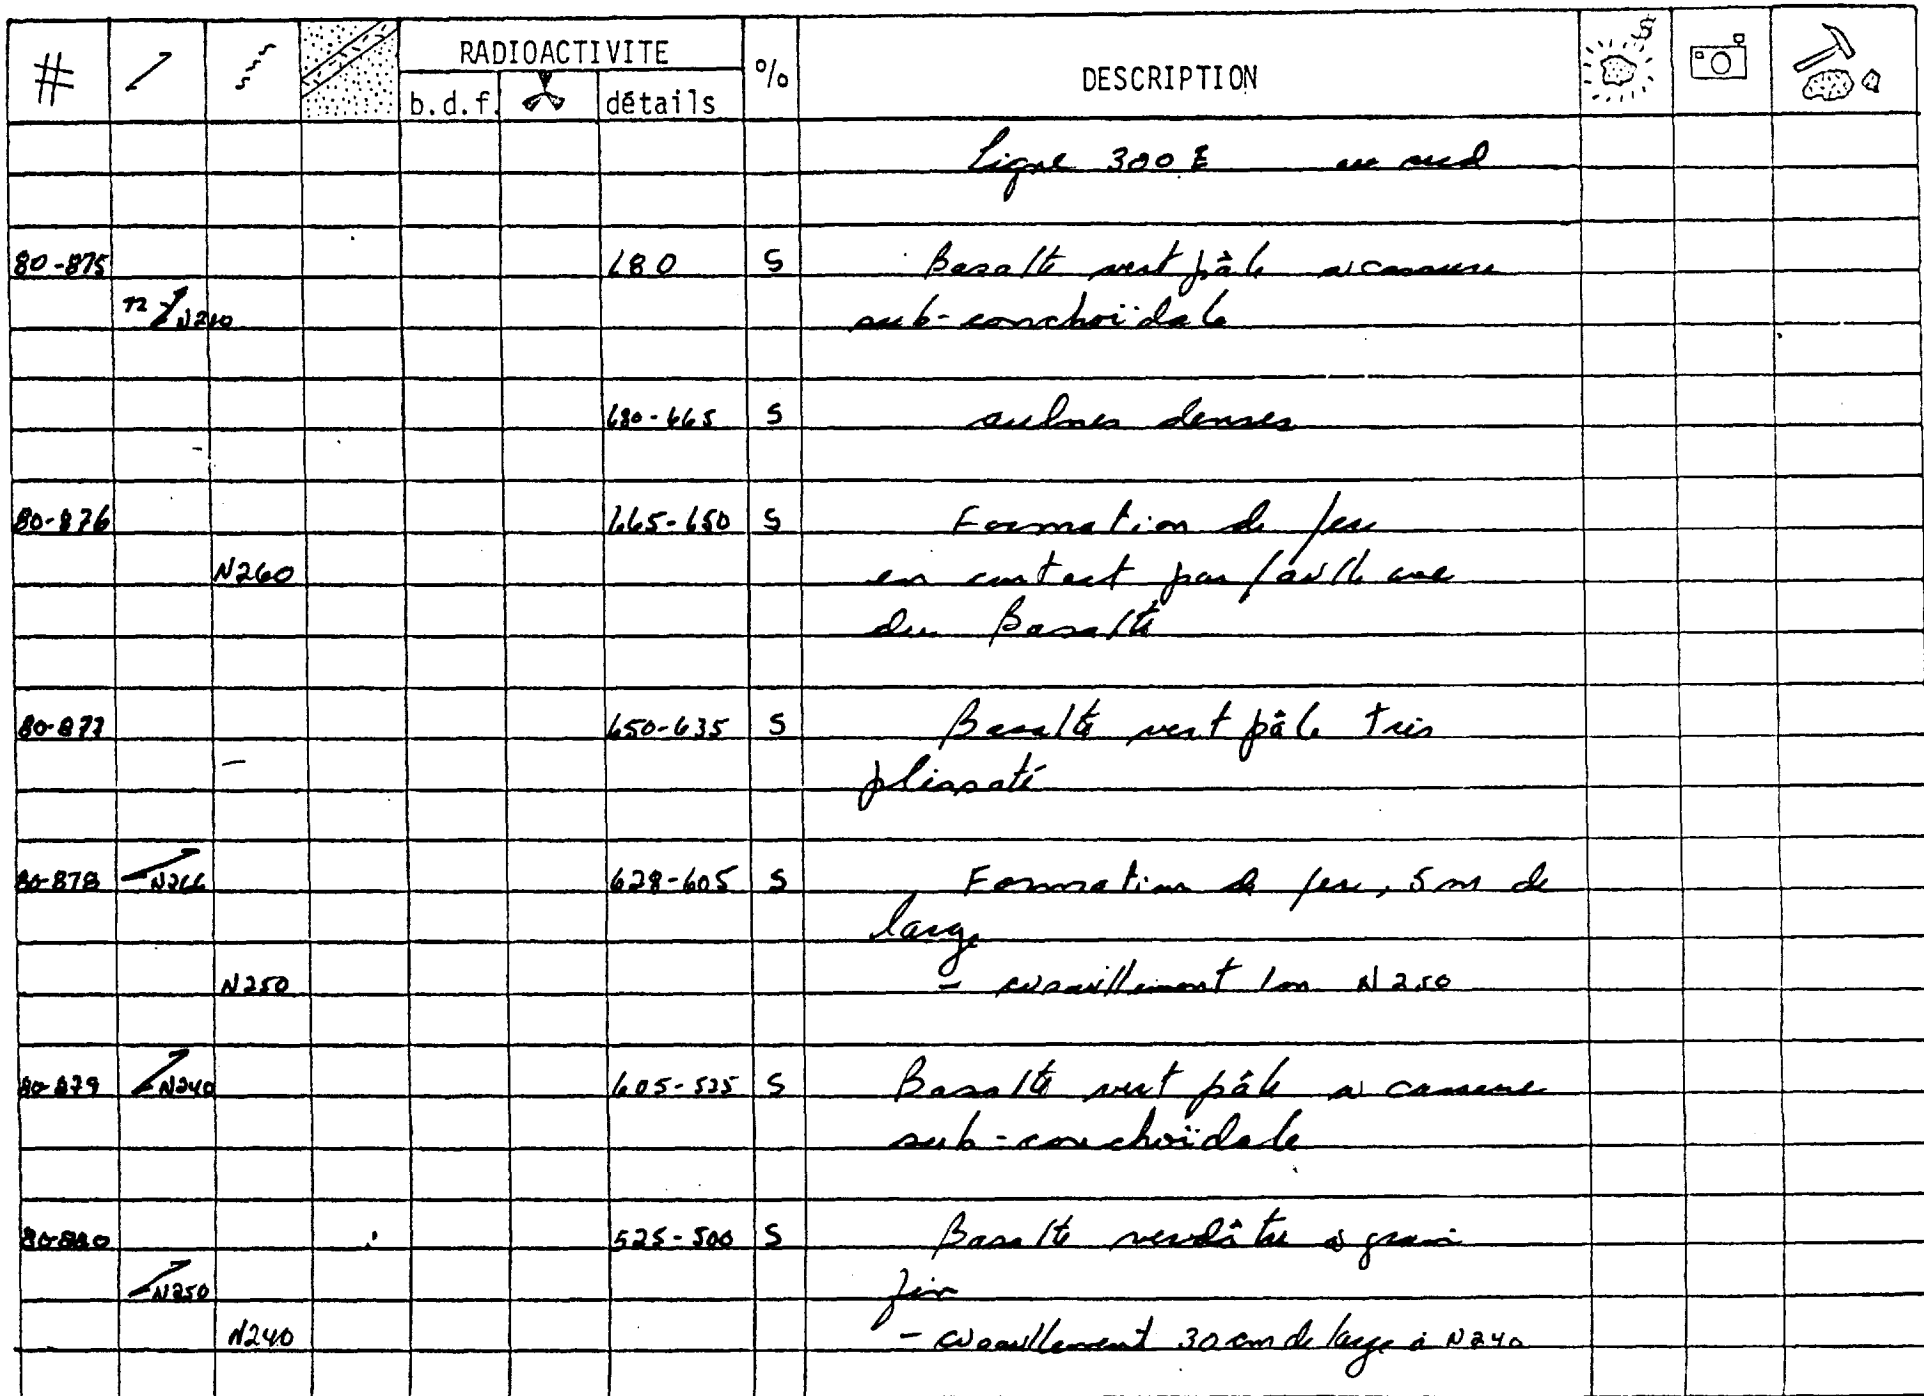 # RADIOACTIVITE % DESCRIPTION S
b.d.f. détails
Ligne 300 E au sud
80-875 680 S Basalte vert pâle à cassure
72 N240 sub-conchoïdale
680-665 S aulnes denses
80-876 665-650 S Formation de fer
N260 en contact par faille avec
du Basalte
80-877 650-635 S Basalte vert pâle très
plissoté
80-878 N266 628-605 S Formation de fer, 5 m de
large
N250 - cisaillement 1m N250
80-879 N240 605-525 S Basalte vert pâle à cassure
sub-conchoïdale
80-880 525-500 S Basalte verdâtre à grain
N250 fin
N240 - cisaillement 30 cm de large à N240